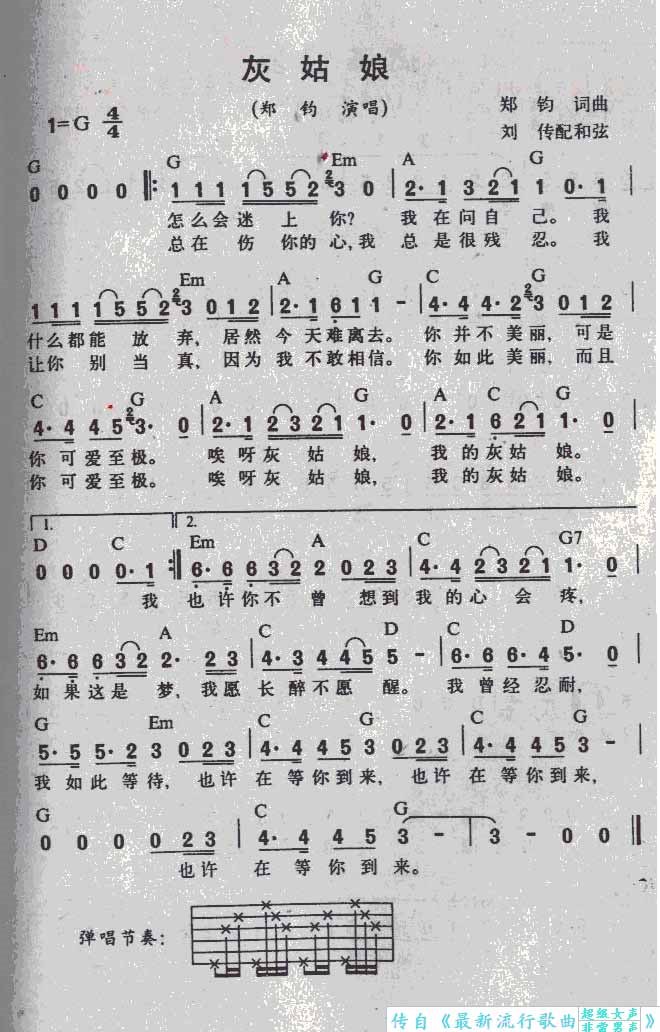 灰 姑 娘
(郑 钧 演唱)
郑 钧 词曲
1=G 4/4
刘 传配和弦
G G Em A G
0 0 0 0 ‖: 1 1 1 1 5 5 2 3 0 | 2· 1 3 2 1 1 0· 1
怎么会迷 上 你? 我 在 问 自 己。我
总 在 伤 你 的 心, 我 总 是 很 残 忍。我
Em A G C G
1 1 1 1 5 5 2 3 0 1 2 | 2· 1 6 1 1 - | 4· 4 4· 2 3 0 1 2
什么都能 放 弃, 居然 今 天难离去。 你 并 不 美丽, 可是
让你 别 当 真, 因为 我 不敢相信。 你 如 此 美丽, 而且
C G A G A C G
4· 4 4 5 3· 0 | 2· 1 2 3 2 1 1· 0 | 2· 1 6 2 1 1· 0
你 可 爱至极。 唉 呀灰 姑 娘, 我 的灰姑 娘。
你 可 爱至极。 唉 呀灰 姑 娘, 我 的灰姑 娘。
1. 2.
D C Em A C G7
0 0 0 0· 1 :‖ 6· 6 6 3 2 2 0 2 3 | 4· 4 2 3 2 1 1· 0
我 也 许你不 曾 想到 我 的 心 会 疼,
Em A C D C D
6· 6 6 3 2 2· 2 | 4· 3 4 4 5 5 - | 6· 6 6· 4 5· 0
如 果 这 是 梦, 我 愿 长 醉不愿 醒。 我 曾 经 忍耐,
G Em C G C G
5· 5 5· 2 3 0 2 3 | 4· 4 4 5 3 0 2 3 | 4· 4 4 5 3 -
我 如 此 等 待, 也许 在 等 你到 来, 也许 在 等 你到 来,
G C G
0 0 0 0 2 3 | 4· 4 4 5 3 - | 3 - 0 0 ‖
也许 在 等 你 到 来。
弹唱节奏:
传自《最新流行歌曲 超级女声 非常男声》